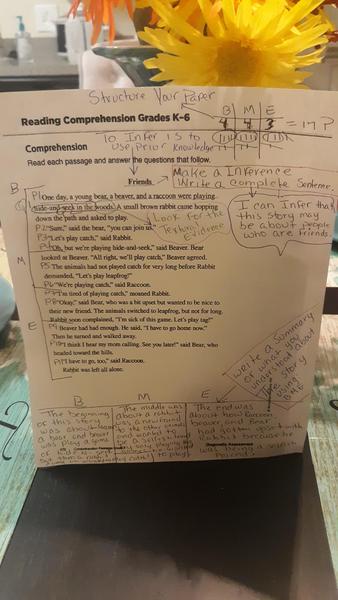 Structure Your Paper
B M E
4 4 3 = 17?
Reading Comprehension Grades K-6
To Infer is to
Use Prior Knowledge
Comprehension
Read each passage and answer the questions that follow.
Make a Inference
Write a complete Sentence.
Friends
B
P1 One day, a young bear, a beaver, and a raccoon were playing
hide-and-seek in the woods. A small brown rabbit came hopping
down the path and asked to play.
P2 "Sure," said the bear, "you can join us."
P3 "Let's play catch," said Rabbit.
"Oh, but we're playing hide-and-seek," said Beaver. Bear
looked at Beaver. "All right, we'll play catch," Beaver agreed.
P5 The animals had not played catch for very long before Rabbit
demanded, "Let's play leapfrog!"
P6 "We're playing catch," said Raccoon.
P7 "I'm tired of playing catch," moaned Rabbit.
P8 "Okay," said Bear, who was a bit upset but wanted to be nice to
their new friend. The animals switched to leapfrog, but not for long.
Rabbit soon complained, "I'm sick of this game. Let's play tag!"
P9 Beaver had had enough. He said, "I have to go home now."
Then he turned and walked away.
P10 "I think I hear my mom calling. See you later!" said Bear, who
headed toward the hills.
P11 "I have to go, too," said Raccoon.
Rabbit was left all alone.
M
E
Look for the
Textual
Evidence
I can Infer that
this story may
be about people
who are friends
Write a Summary
of what you
understand about
the story
using
BME
B
The beginning
of this story
was about
a bear and beaver
was play a game
M
The middle was
about a rabbit
was a new friend
to the other animals
and wanted to
be a selfish friend
E
The end was
about how Raccoon
beaver, and Bear
had gotten upset with
Rabbit because he
was being a selfish
friend.
Diagnostic Assessment